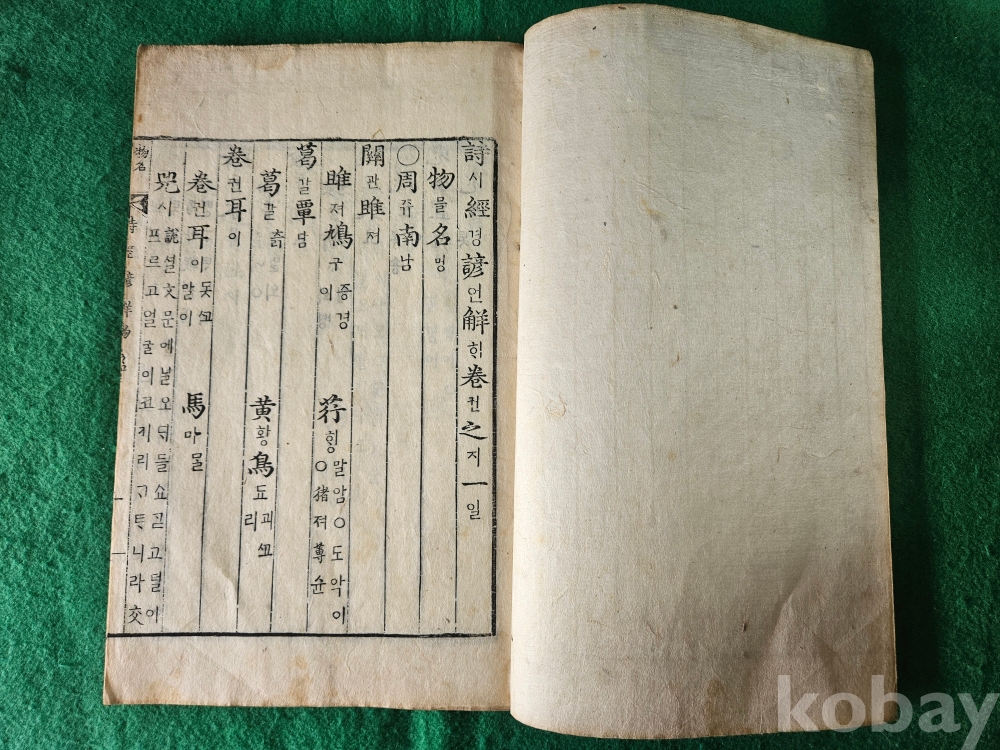 詩시經경諺언解ᄒᆡ卷권之지一일
物믈名명
○周쥬南남
關관雎져
雎져鳩구 증경이 荇ᄒᆡᆼ 말암○도악이○猪져蓴슌
葛갈覃담
葛갈 츩 黃황鳥됴 괴ᄭᅩ리
卷권耳이
卷권耳이 돗ᄭᅩ말이 馬마 ᄆᆞᆯ
兕시 說셜文문에ᄀᆞᆯ오ᄃᆡ들쇼ᄀᆞᆮ고털이프르고얼굴이코ᄭᅵ리ᄀᆞᆮᄐᆞ니라交
物名
詩經諺解物名
一
kobay